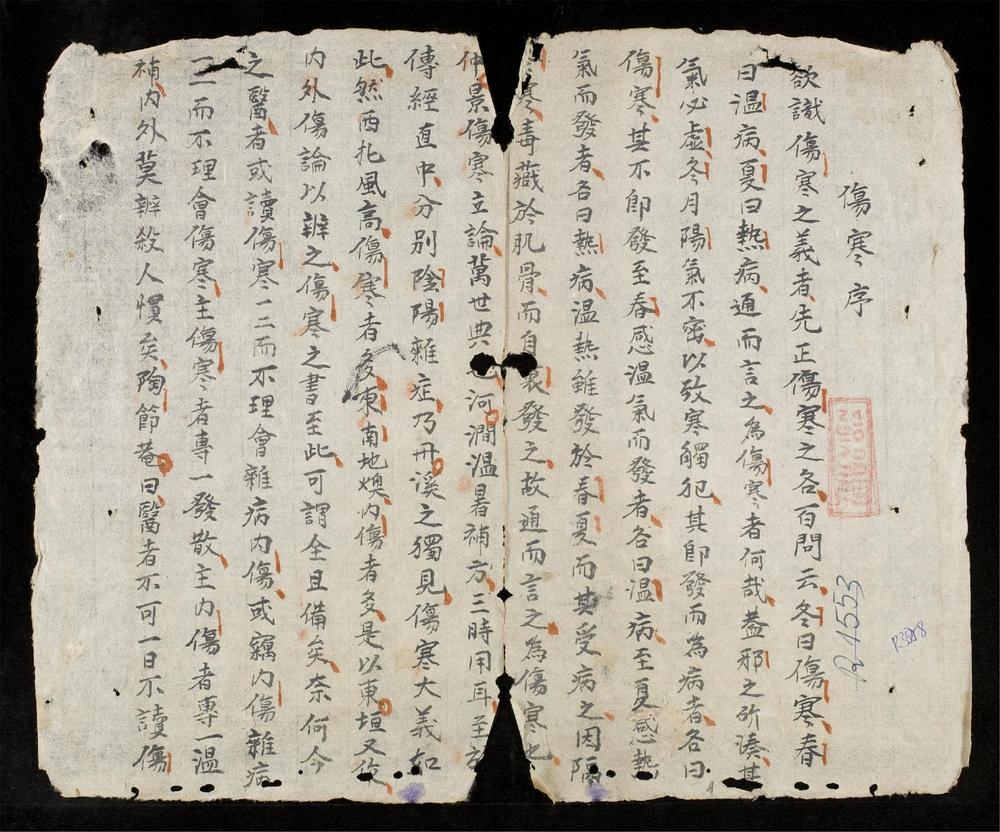 傷寒序
欲識傷寒之義者先正傷寒之名百問云冬曰傷寒春
曰温病夏曰熱病通而言之為傷寒者何哉盖邪之所湊其
氣必虚冬月陽氣不密以致寒觸犯其即發而為病者名曰
傷寒其不即發至春感温氣而發者名曰温病至夏感熱
氣而發者名曰熱病温熱雖發於春夏而其受病之因隔
寒毒藏於肌骨而自發之故通而言之為傷寒也
仲景傷寒立論萬世典也河澗温暑補方三時用耳至
傳經直中分別陰陽雜症乃丹溪之獨見傷寒大義如
此然西北風高傷寒者多東南地燠内傷者多是以東垣又
内外傷論以辨之傷寒之書至此可謂全且備矣奈何今
之醫者或讀傷寒一二而不理會雜病内傷或竊内傷雜病
一二而不理會傷寒主傷寒者專一發散主内傷者專一温
補内外莫辨殺人慣矣陶節菴曰醫者不可一日不讀傷
THU VIEN
QUOC GIA
R.4553